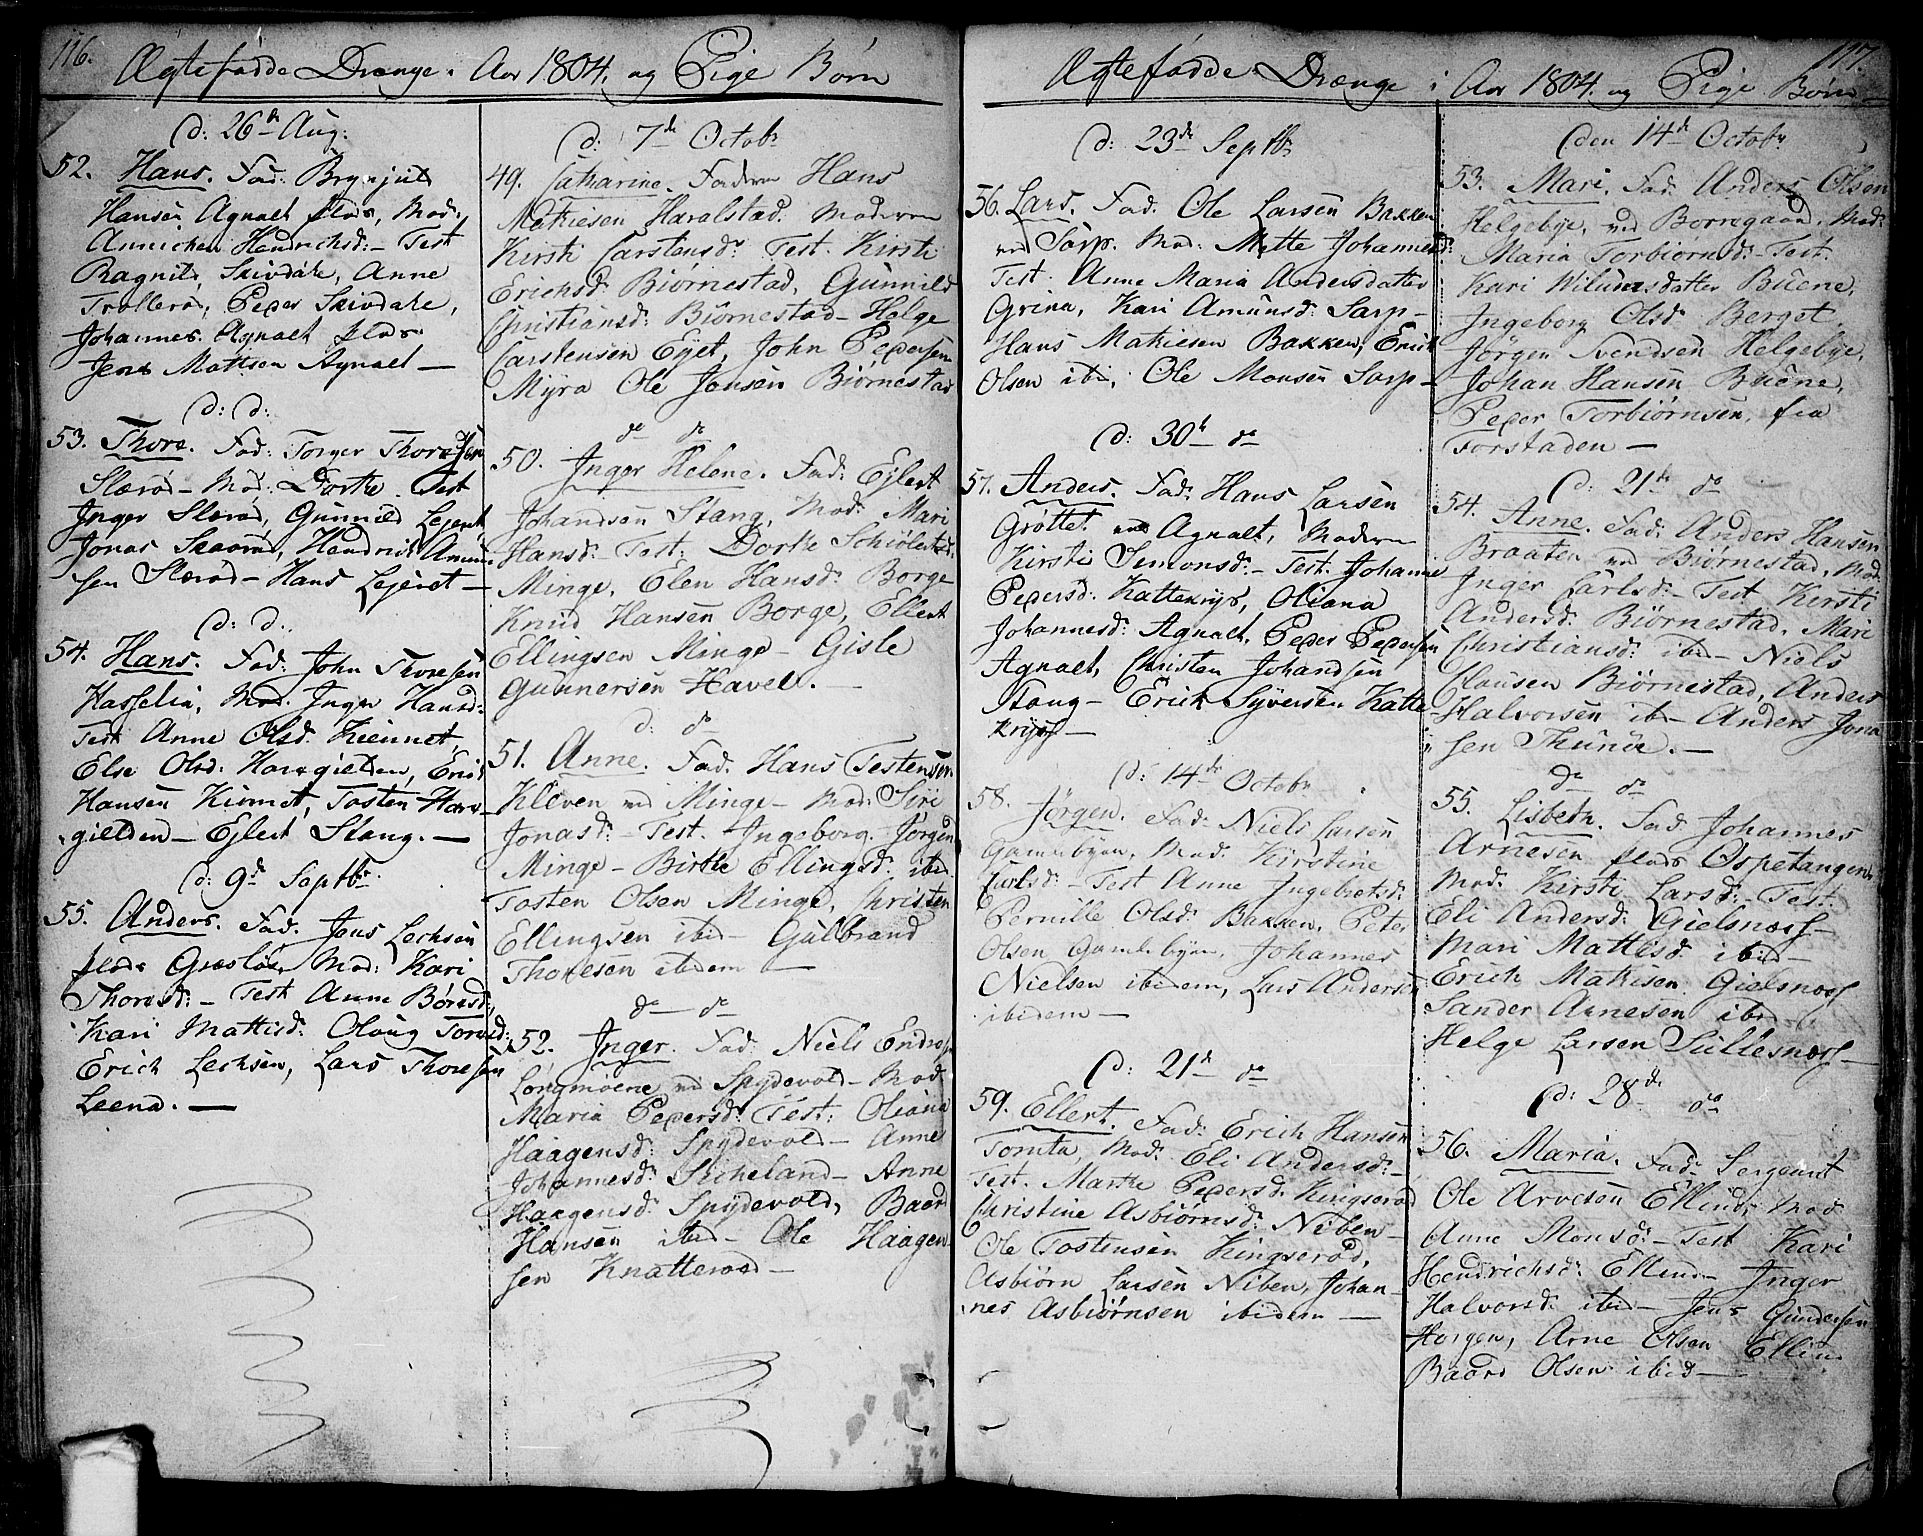 116.
Ægtefødde Drænge. Aar 1804. og Pige Børn
d: 26de Aug:
52. Hans. Fad: Brynjul
Hansen Agnalt plds, Mod:
Annichen Hendrichsd:- Test
Ragnild Skivdahl, Anne
Trollerød, Peder Skivdahl,
Johannes Agnalt plds
Jens Mattsen Agnalt —
d: d:
53. Thore. Fad: Torger Thoresen
Slærød - Mod: Dorthe. Test
Inger Slærød, Gunnild Lejeret
Jonas Skaarød, Hendrich Amun-
sen Slærød - Hans Lejeret —
d: d:
54. Hans. Fad: John Thoresen
Hasselia, Mod. Inger Hansd:
Test Anne Olsd. Kiennet,
Else Olsd: Haugielden, Erich
Hansen Kiennet, Tosten Hau-
gielden - Ejlert Stang. —
d: 9de Septbr
55. Anders. Fad. Jens Lechsen
plds Græsløs, Mod: Kari
Thoresd:- Test Anne Børesd:
Kari Mattisd: Olaug Toresd:
Erich Lechsen, Lars Thoresen
Leena. —
d: 7de Octobr
49. Catharine. Faderen Hans
Mathiesen Haralstad: Moderen
Kirsti Carstensdr Test. Kirsti
Erichsd: Biørnestad, Gunnild
Christiansd: Biørnestad - Helge
Carstensen Eyet, John Pedersen
Myra Ole Jonsen Biørnestad
do do
50. Inger Helene. Fad: Ejlert
Johandsen Stang, Mod: Mari
Hansd: Test: Dorthe Schiølestad:
Minge, Elen Hansd: Borge
Knud Hansen Borge, Ellert
Ellingsen Minge - Gisle
Gunnersen Havel. —
d: do
51. Anne. Fad. Hans Testensen
Kleven ved Minge - Mod: Siri
Jonasd:- Test. Ingeborg Jørgensd
Minge - Birthe Ellingsd: ibid
Tosten Olsen Minge, Christen
Ellingsen ibid - Gulbrand
Thoresen ibidem —
do do
52. Inger. Fad: Niels Endres
Longmoene ved Spydevold - Mod
Maria Pedersd: Test: Oliana
Haagensd: Spydevold - Anne
Johannesd: Sicheland - Anne
Haagensd: Spydevold, Baard
Hansen ibid - Ole Haagen-
sen Knatterød —
117.
Ægtefødde Drænge i Aar 1804. og Pige Børn
d: 23de Septbr
56. Lars. Fad. Ole Larsen Bakken
ved Sarp. Mod: Mette Johannesd:
Test: Anne Maria Andersdatter
Grina, Kari Amunsd: Sarp -
Hans Mathiesen Bakken, Erich
Olsen ibi, Ole Monsen Sarp —
d: 30te do
57. Anders. Fad: Hans Larsen
Grøttet ved Agnalt, Moderen
Kirsti Simonsd:- Test: Johanne
Pedersd: Kattekrys, Oliana
Johannesd: Agnalt, Peder Pedersen
Agnalt, Christen Johandsen
Stang - Erich Syversen Katte
krys —
d: 14de Octobr
58. Jørgen. Fad: Niels Larsen
Gamlebyen, Mod. Kirstine
Carlsd:- Test Anne Ingebretsd:
Pernille Olsd: Bakken, Peter
Olsen Gamlebyen, Johannes
Nielsen ibidem, Lars Andersen
ibidem —
d: 21de do
59. Ellert. Fad: Erich Hansen
Tomta, Mod: Eli Andersd:-
Test. Marthe Pedersd: Kingserød
Christine Asbiørnsd: Niben -
Ole Tostensen Kingserød,
Asbiørn Larsen Niben, Johan-
nes Asbiørnsen ibidem —
den 14de Octobr
53. Mari. Fad: Anders Olsen
Helgebye, ved Borregaard, Mod:
Maria Torbiørnsd:- Test.
Kari Wilumsdatter Buene,
Ingeborg Olsd: Berget
Jørgen Svendsen Helgebye,
Johan Hansen Buene,
Peder Torbiørnsen, fra
Forstaden —
d: 21de do
54. Anne. Fad: Anders Hansen
Braaten ved Biørnestad, Mod:
Inger Carlsd:- Test Kirsti
Andersd: Biørnestad. Mari
Christiansd: ibid - Niels
Clausen Biørnestad, Anders
Halvorsen ibid - Anders Jona
sen Thune. —
do do
55. Lisbeth. Fad. Johannes
Arnesen plads Ospetangen,
Mod: Kirsti Larsd: Test.
Eli Andersd: Gielsnæs -
Mari Mattisd. ibid -
Erich Mathisen Gielsnæs
Sander Arnesen ibid
Helge Larsen Tullesnæs —
d: 28de do
56. Maria. Fad: Sergeant
Ole Arvesen Ellind, Mod
Anne Monsd:- Test Kari
Hendrichsd: Ellind - Inger
Halvorsd: ibid - Jens Gundersen
Horgen, Arne Olsen Ellin
Baard Olsen ibid —